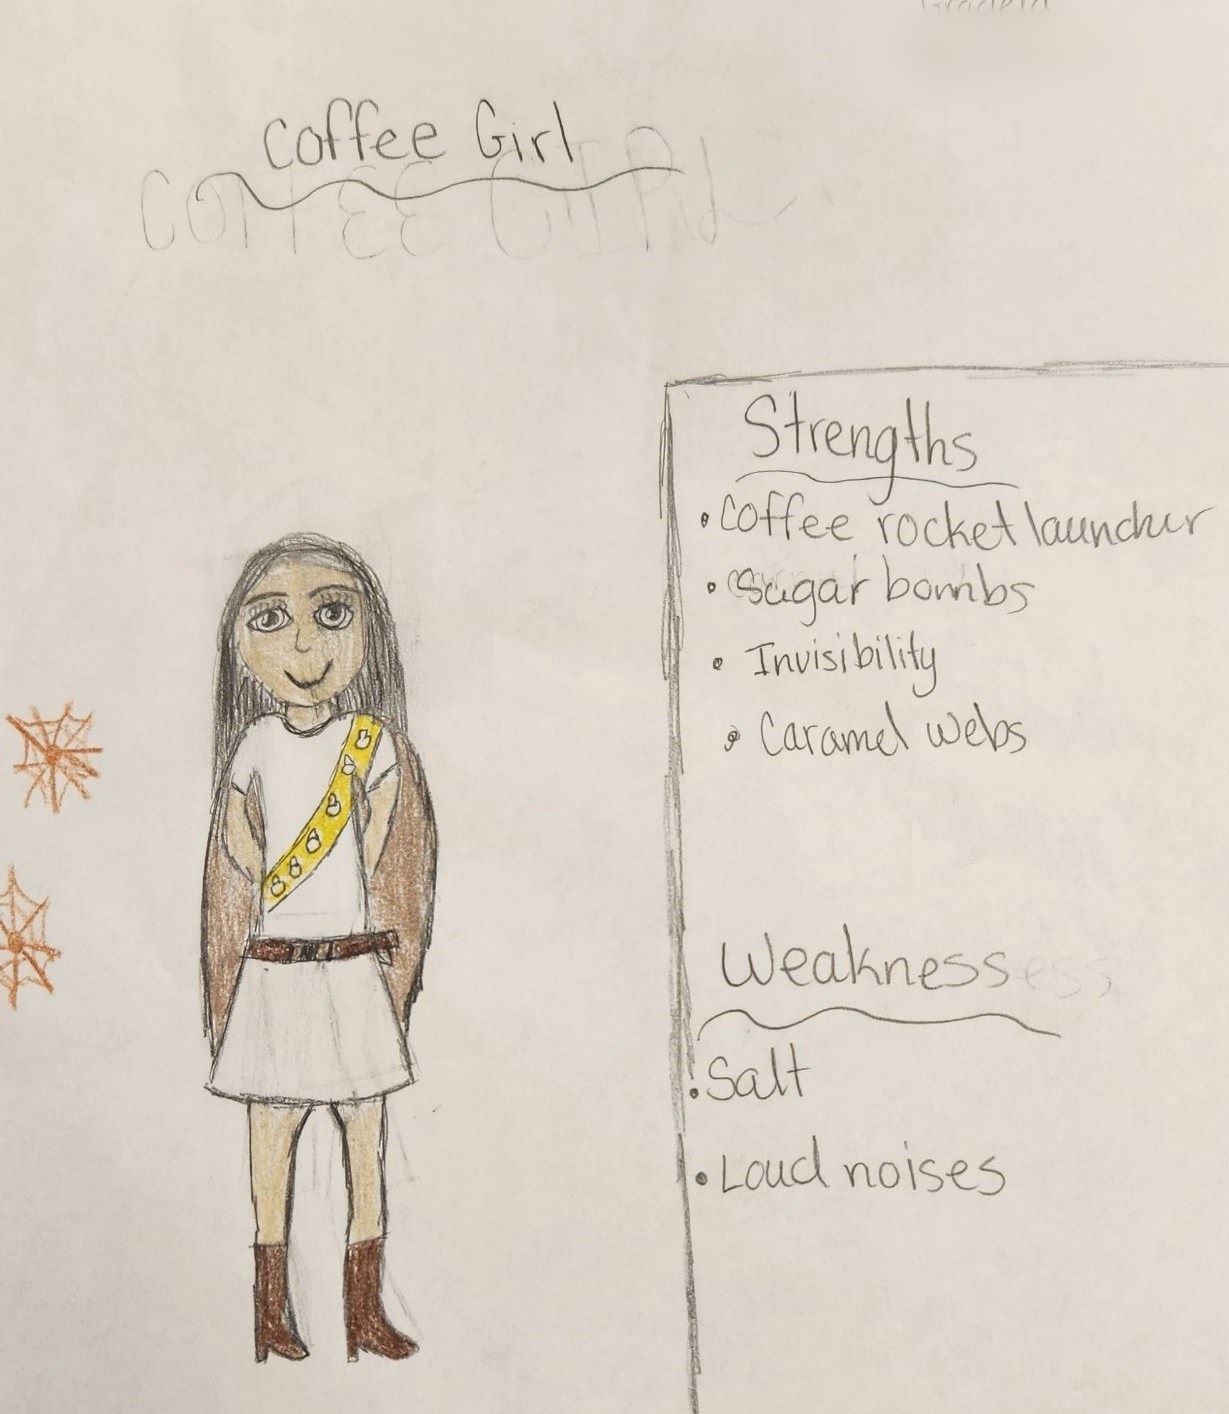 Coffee Girl
COFFEE GIRL
Strengths
• Coffee rocket launcher
• Sugar bombs
• Invisibility
• Caramel Webs
Weakness
• Salt
• Loud noises